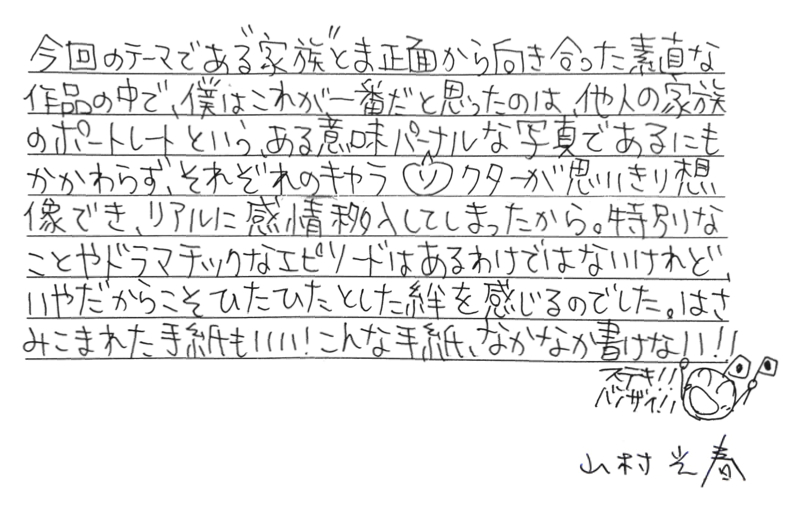 今回のテーマである“家族”とま正面から向き合った素直な
作品の中で、僕はこれが一番だと思ったのは、他人の家族
のポートレートという、ある意味パーナルな写真であるにも
かかわらず、それぞれのキャラクターが思いきり想
ソ
像でき、リアルに感情移入してしまったから。特別な
ことやドラマチックなエピソードはあるわけではないけれど、
いやだからこそひたひたとした絆を感じるのでした。はさ
みこまれた手紙もいい!こんな手紙、なかなか書けない!!
ステキ!!
バンザイ!!
山村光春